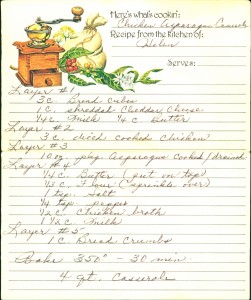 Here's what's cookin': Chicken Asparagus Casserole
Recipe from the kitchen of: Helen
Serves:
Layer #1
3 c. Bread cubes
1 c. shredded Cheddar Cheese
1/4 c. Milk 1/4 c. Butter
Layer #2
3 c. diced cooked Chicken
Layer #3
10 oz. pkg Asparagus cooked/drained
Layer #4
1/4 c. Butter (put on top)
1/3 c. Flour (sprinkle over)
1 tsp. Salt
1/4 tsp. pepper
1/2 c. Chicken broth
1 1/2 c. Milk
Layer #5
1 c. Bread Crumbs
Bake 350° - 30 min.
4 qt. Casserole